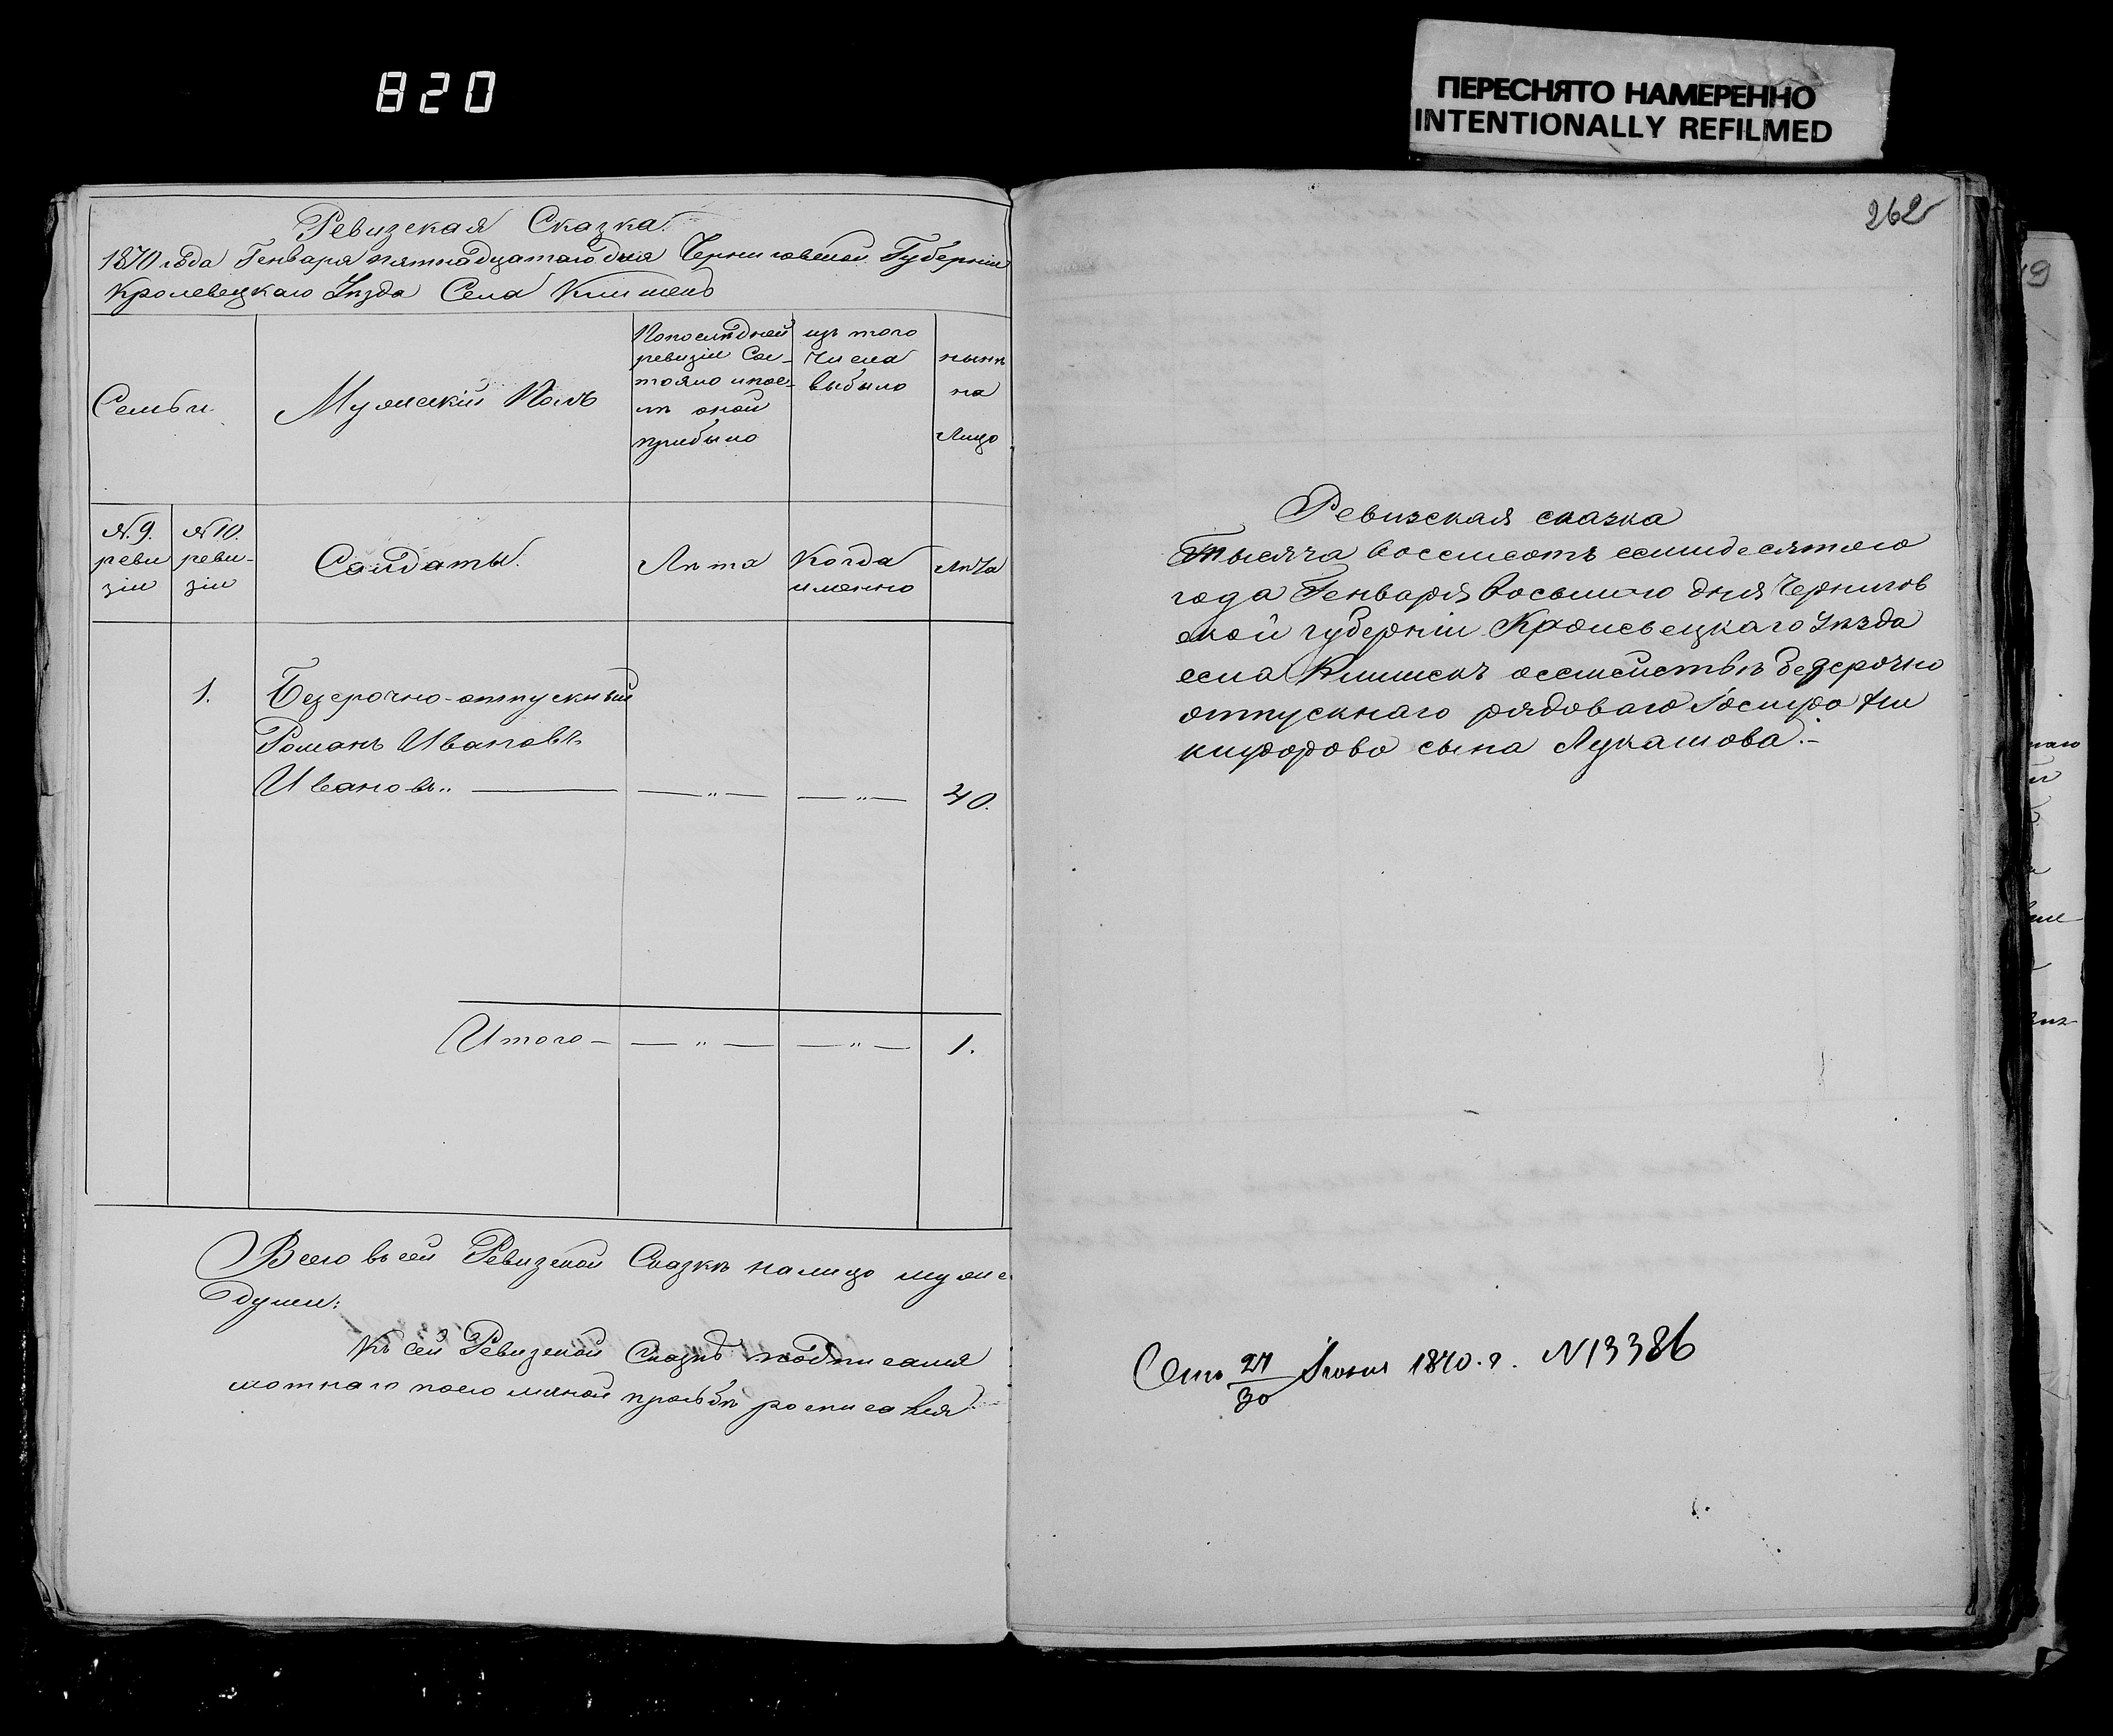 820
ПЕРЕСНЯТО НАМЕРЕННО
INTENTIONALLY REFILMED
Ревизская Сказка.
1870 года Генваря пятнадцатаго дня Черниговской Губерніи
Кролевецкаго Уѣзда Села Клишекъ
Семьи
Мужескій Полъ
По послѣдней
ревизіи Сос-
тояло и пос-
лѣ оной
прибыло
изъ того
числа
выбыло
нынѣ
на
Лицо
№ 9.
реви
зіи
№ 10.
реви-
зіи
Солдаты.
Лѣта
Когда
именно
Лѣта
1.
Безсрочно-отпускный
Романъ Ивановъ
Ивановъ „ — — „ — — „ — 40.
Итого — — „ — — „ — 1.
Всего въ сей Ревизской Сказкѣ налицо муже
душ
Къ сей Ревизской Сказкѣ подписалс
мотнаго по его личной прозьбѣ росписался
262
Ревизская сказка
Тысяча восемсотъ семидесятого
года Генваря восьмого дня Чернигов
ской губерніи Кролевецкаго Уѣзда
села Клишекъ о семействѣ безсрочно
отпускнаго рядоваго Ни
кифорова сына Лукашова.-
27
30
1870. г. N 13386